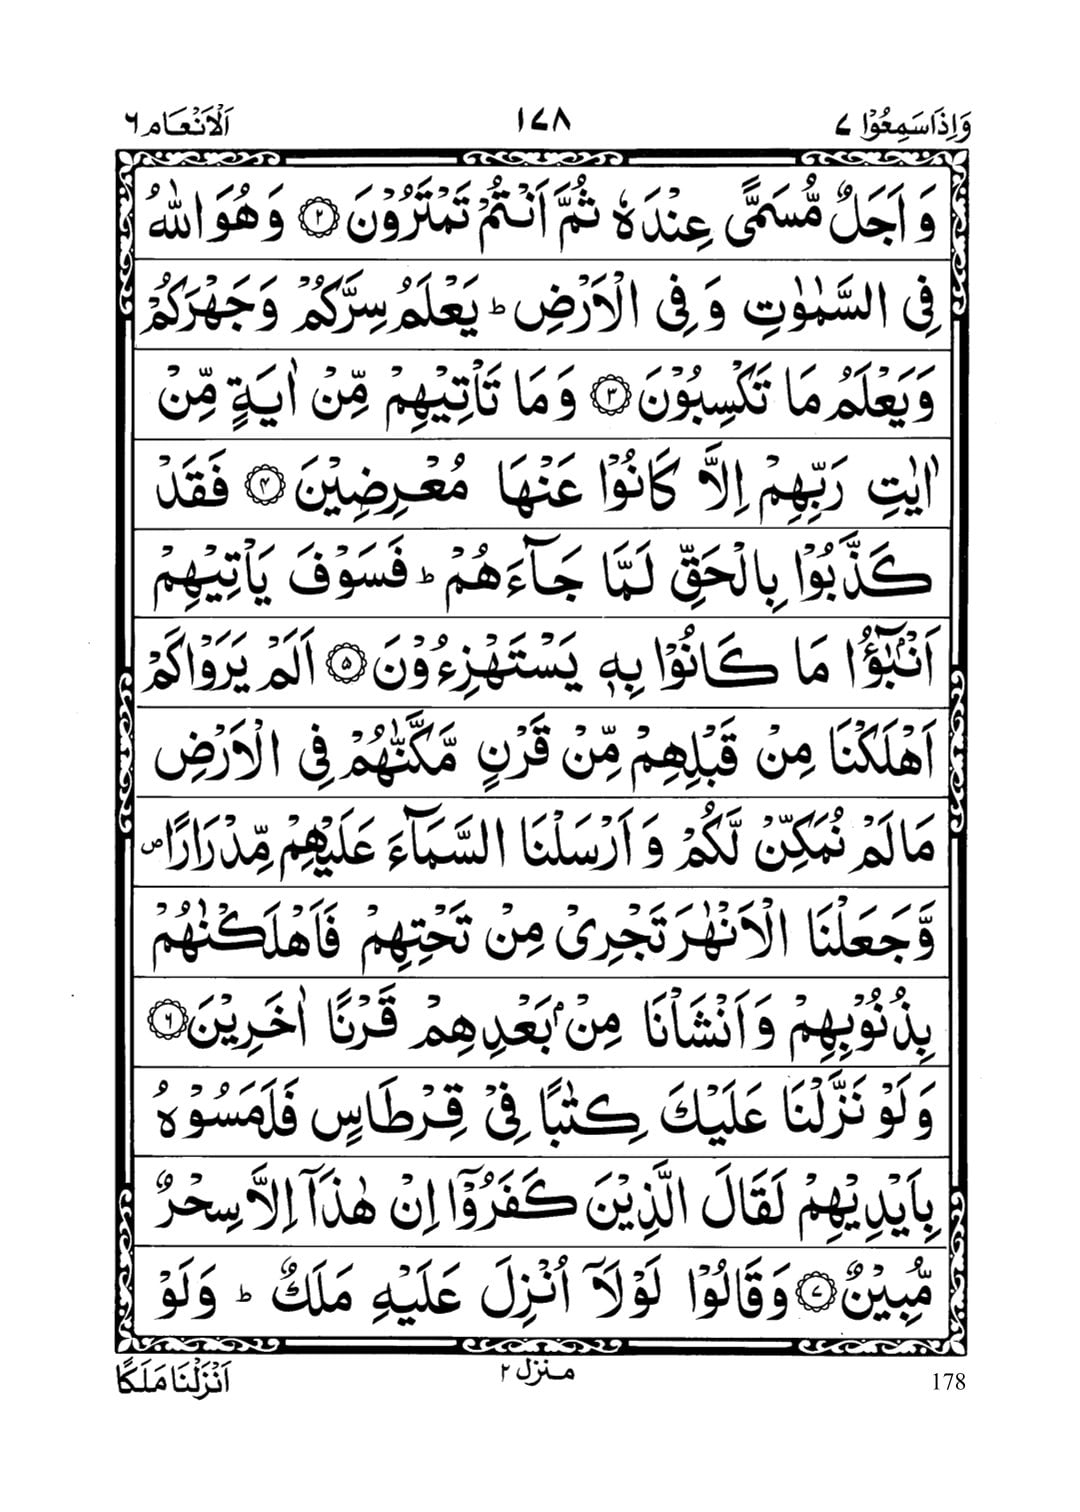 وَاِذَاسَمِعُوۡا ٧ ١٧٨ اَلۡاَنۡعَام ٦
وَ اَجَلٌ مُّسَمًّی عِنۡدَهٗ ثُمَّ اَنۡتُمۡ تَمۡتَرُوۡنَ ۝٢ وَ هُوَ اللّٰهُ
فِی السَّمٰوٰتِ وَ فِی الۡاَرۡضِ ؕ یَعۡلَمُ سِرَّكُمۡ وَ جَهۡرَكُمۡ
وَیَعۡلَمُ مَا تَكۡسِبُوۡنَ ۝٣ وَ مَا تَاۡتِیۡهِمۡ مِّنۡ اٰیَةٍ مِّنۡ
اٰیٰتِ رَبِّهِمۡ اِلَّا كَانُوۡا عَنۡهَا مُعۡرِضِیۡنَ ۝٤ فَقَدۡ
كَذَّبُوۡا بِالۡحَقِّ لَمَّا جَآءَهُمۡ ؕ فَسَوۡفَ یَاۡتِیۡهِمۡ
اَنۡۢبٰٓؤُا مَا كَانُوۡا بِهٖ یَسۡتَهۡزِءُوۡنَ ۝٥ اَلَمۡ یَرَوۡا كَمۡ
اَهۡلَكۡنَا مِنۡ قَبۡلِهِمۡ مِّنۡ قَرۡنٍ مَّكَّنّٰهُمۡ فِی الۡاَرۡضِ
مَا لَمۡ نُمَكِّنۡ لَّكُمۡ وَ اَرۡسَلۡنَا السَّمَآءَ عَلَیۡهِمۡ مِّدۡرَارًا ۪
وَّ جَعَلۡنَا الۡاَنۡهٰرَ تَجۡرِیۡ مِنۡ تَحۡتِهِمۡ فَاَهۡلَكۡنٰهُمۡ
بِذُنُوۡبِهِمۡ وَ اَنۡشَاۡنَا مِنۡۢ بَعۡدِهِمۡ قَرۡنًا اٰخَرِیۡنَ ۝٦
وَ لَوۡ نَزَّلۡنَا عَلَیۡكَ كِتٰبًا فِیۡ قِرۡطَاسٍ فَلَمَسُوۡهُ
بِاَیۡدِیۡهِمۡ لَقَالَ الَّذِیۡنَ كَفَرُوۡۤا اِنۡ هٰذَاۤ اِلَّا سِحۡرٌ
مُّبِیۡنٌ ۝٧ وَ قَالُوۡا لَوۡلَاۤ اُنۡزِلَ عَلَیۡهِ مَلَكٌ ؕ وَ لَوۡ
178 منزل ٢ اَنۡزَلۡنَا مَلَكًا